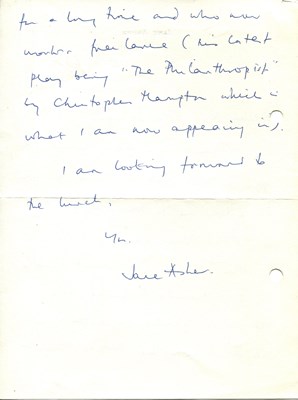 for a long time and who now
works free lance (his latest
play being "The Philanthropist"
by Christopher Hampton which is
what I am now appearing in).
I am looking forward to
the lunch,
Yrs.
Jane Asher.